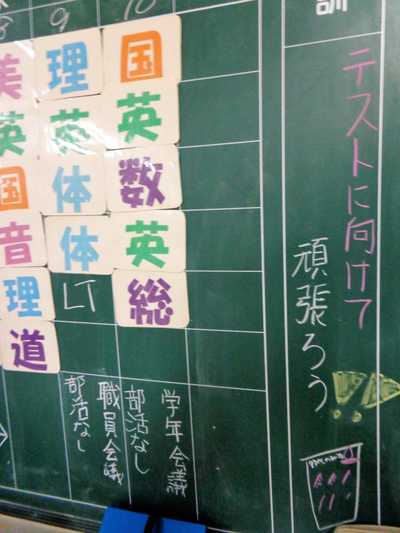 訓
テストに向けて
頑張ろう!!
10
国
英
数
英
総
学年会議
部活なし
9
理
英
体
体
LT
職員会議
部活なし
8
美
英
国
音
理
道